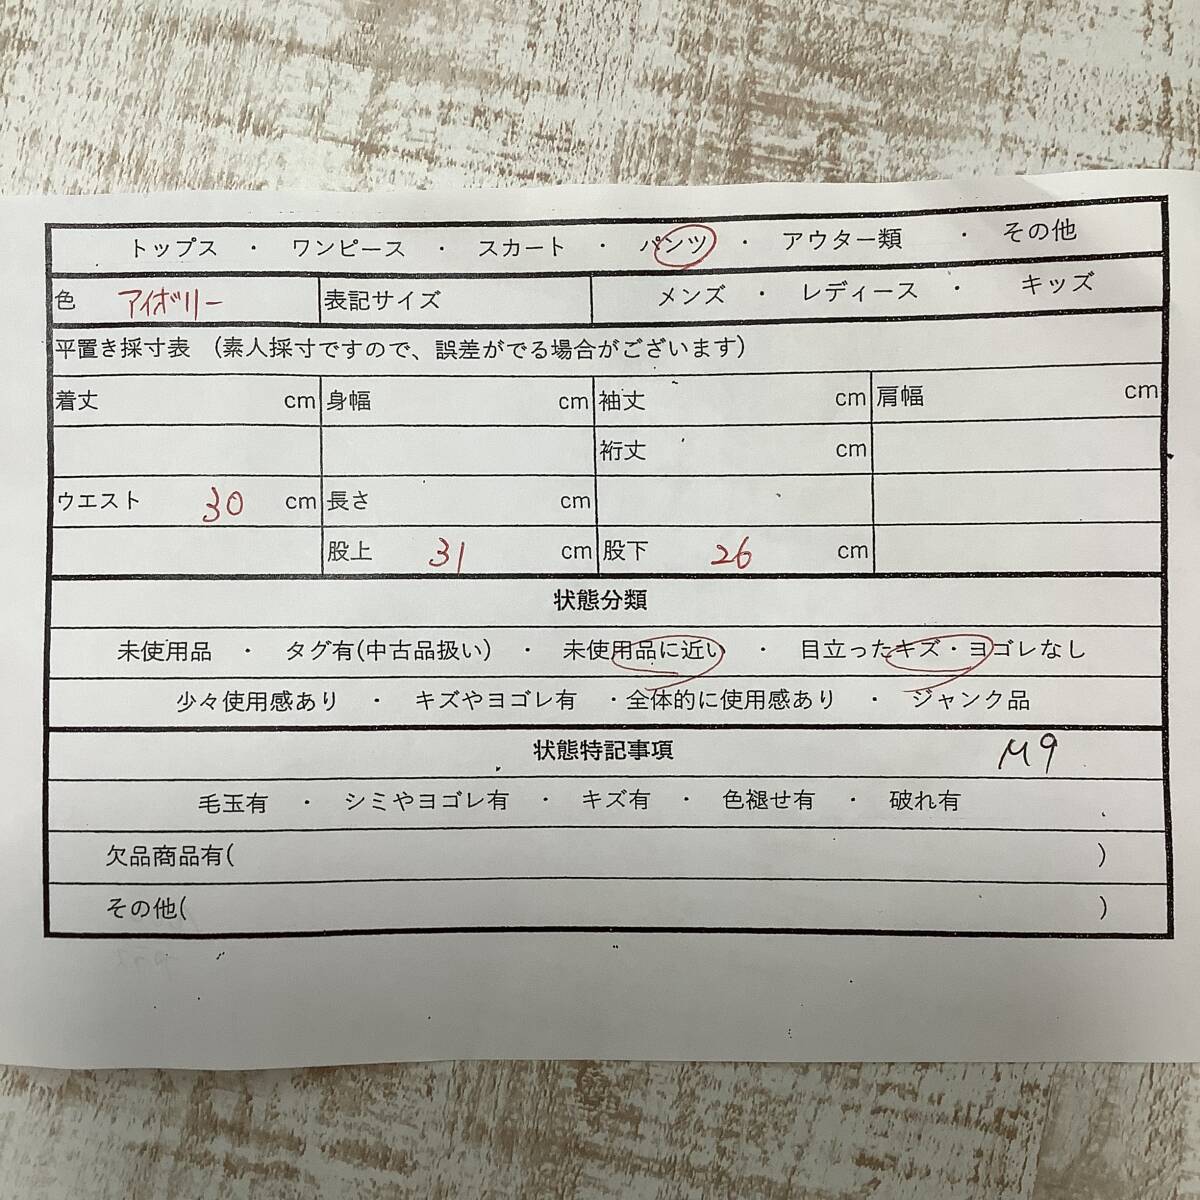 トップス ・ ワンピース ・ スカート ・ パンツ ・ アウター類 ・ その他
色 アイボリー 表記サイズ メンズ ・ レディース ・ キッズ
平置き採寸表 (素人採寸ですので、誤差がでる場合がございます)
着丈 cm 身幅 cm 袖丈 cm 肩幅 cm
裄丈 cm
ウエスト 30 cm 長さ cm
股上 31 cm 股下 26 cm
状態分類
未使用品 ・ タグ有(中古品扱い) ・ 未使用品に近い ・ 目立ったキズ・ヨゴレなし
少々使用感あり ・ キズやヨゴレ有 ・全体的に使用感あり ・ ジャンク品
状態特記事項 M9
毛玉有 ・ シミやヨゴレ有 ・ キズ有 ・ 色褪せ有 ・ 破れ有
欠品商品有( )
その他( )